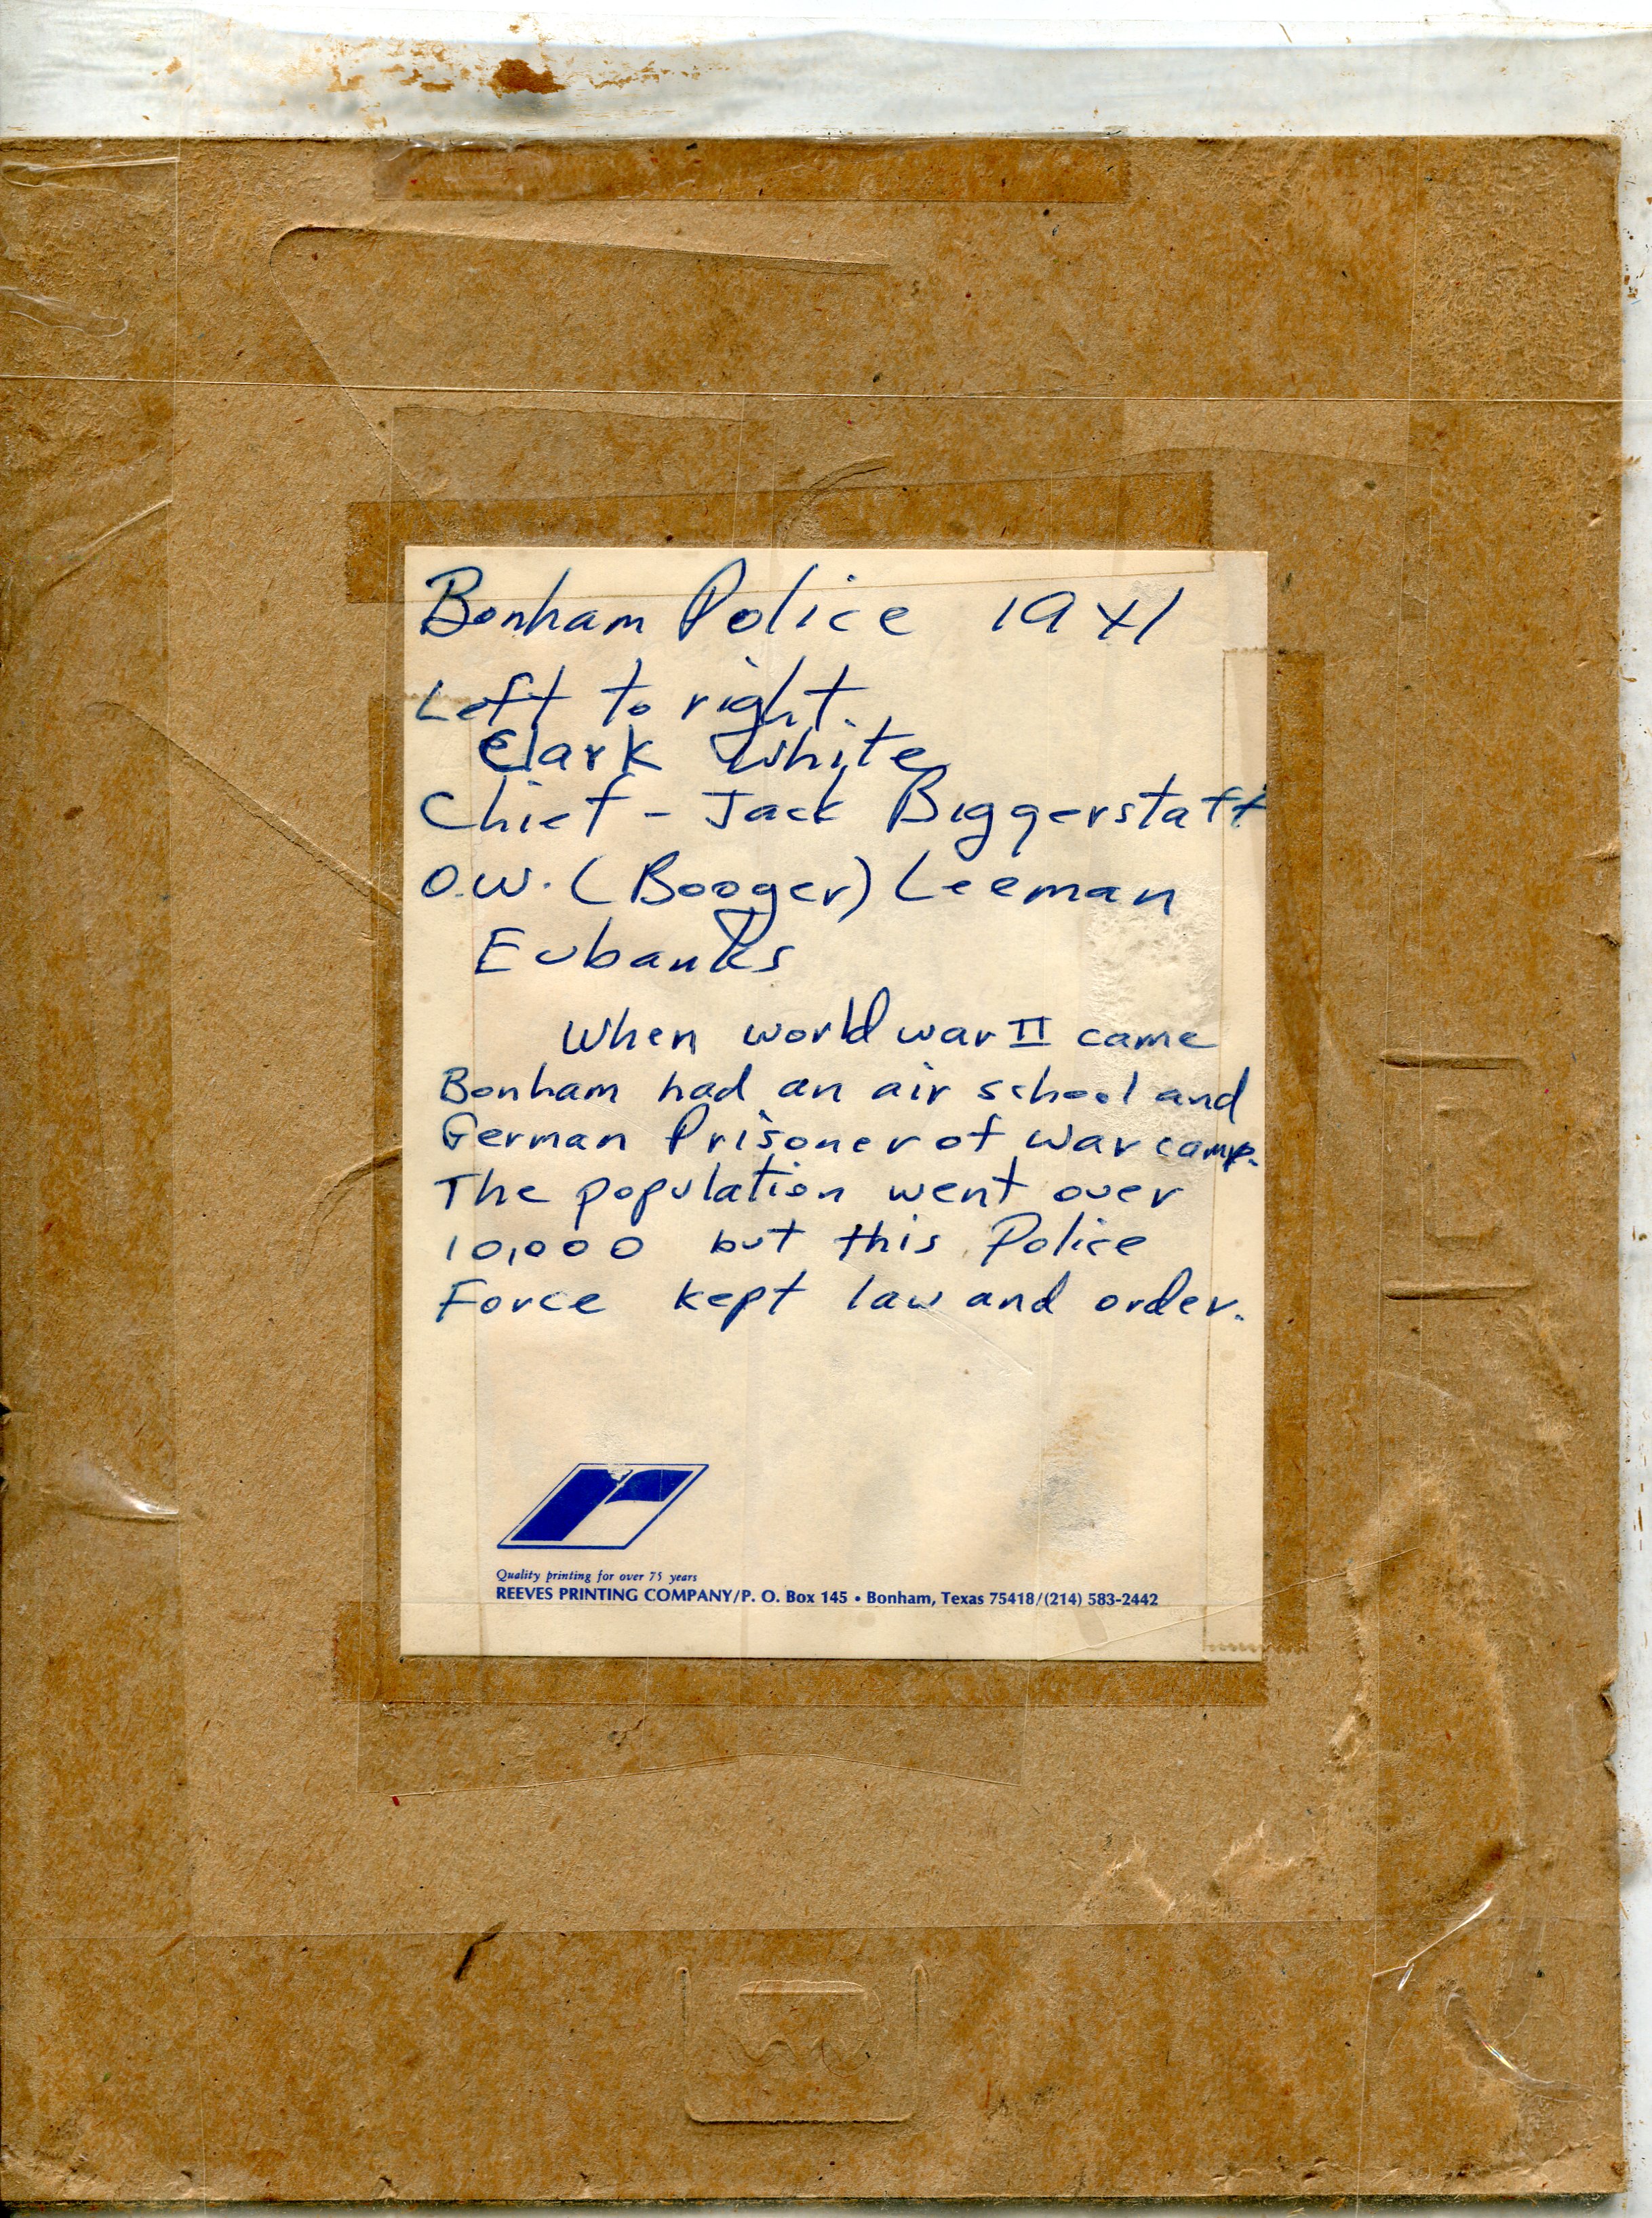 Bonham Police 1941
Left to right.
Clark White
Chief - Jack Biggerstaff
O.W. (Booger) Leeman
Eubanks
When world war II came
Bonham had an air school and
German Prisoner of War camp.
The population went over
10,000 but this Police
Force kept law and order.
Quality printing for over 75 years
REEVES PRINTING COMPANY/P. O. Box 145 • Bonham, Texas 75418/(214) 583-2442